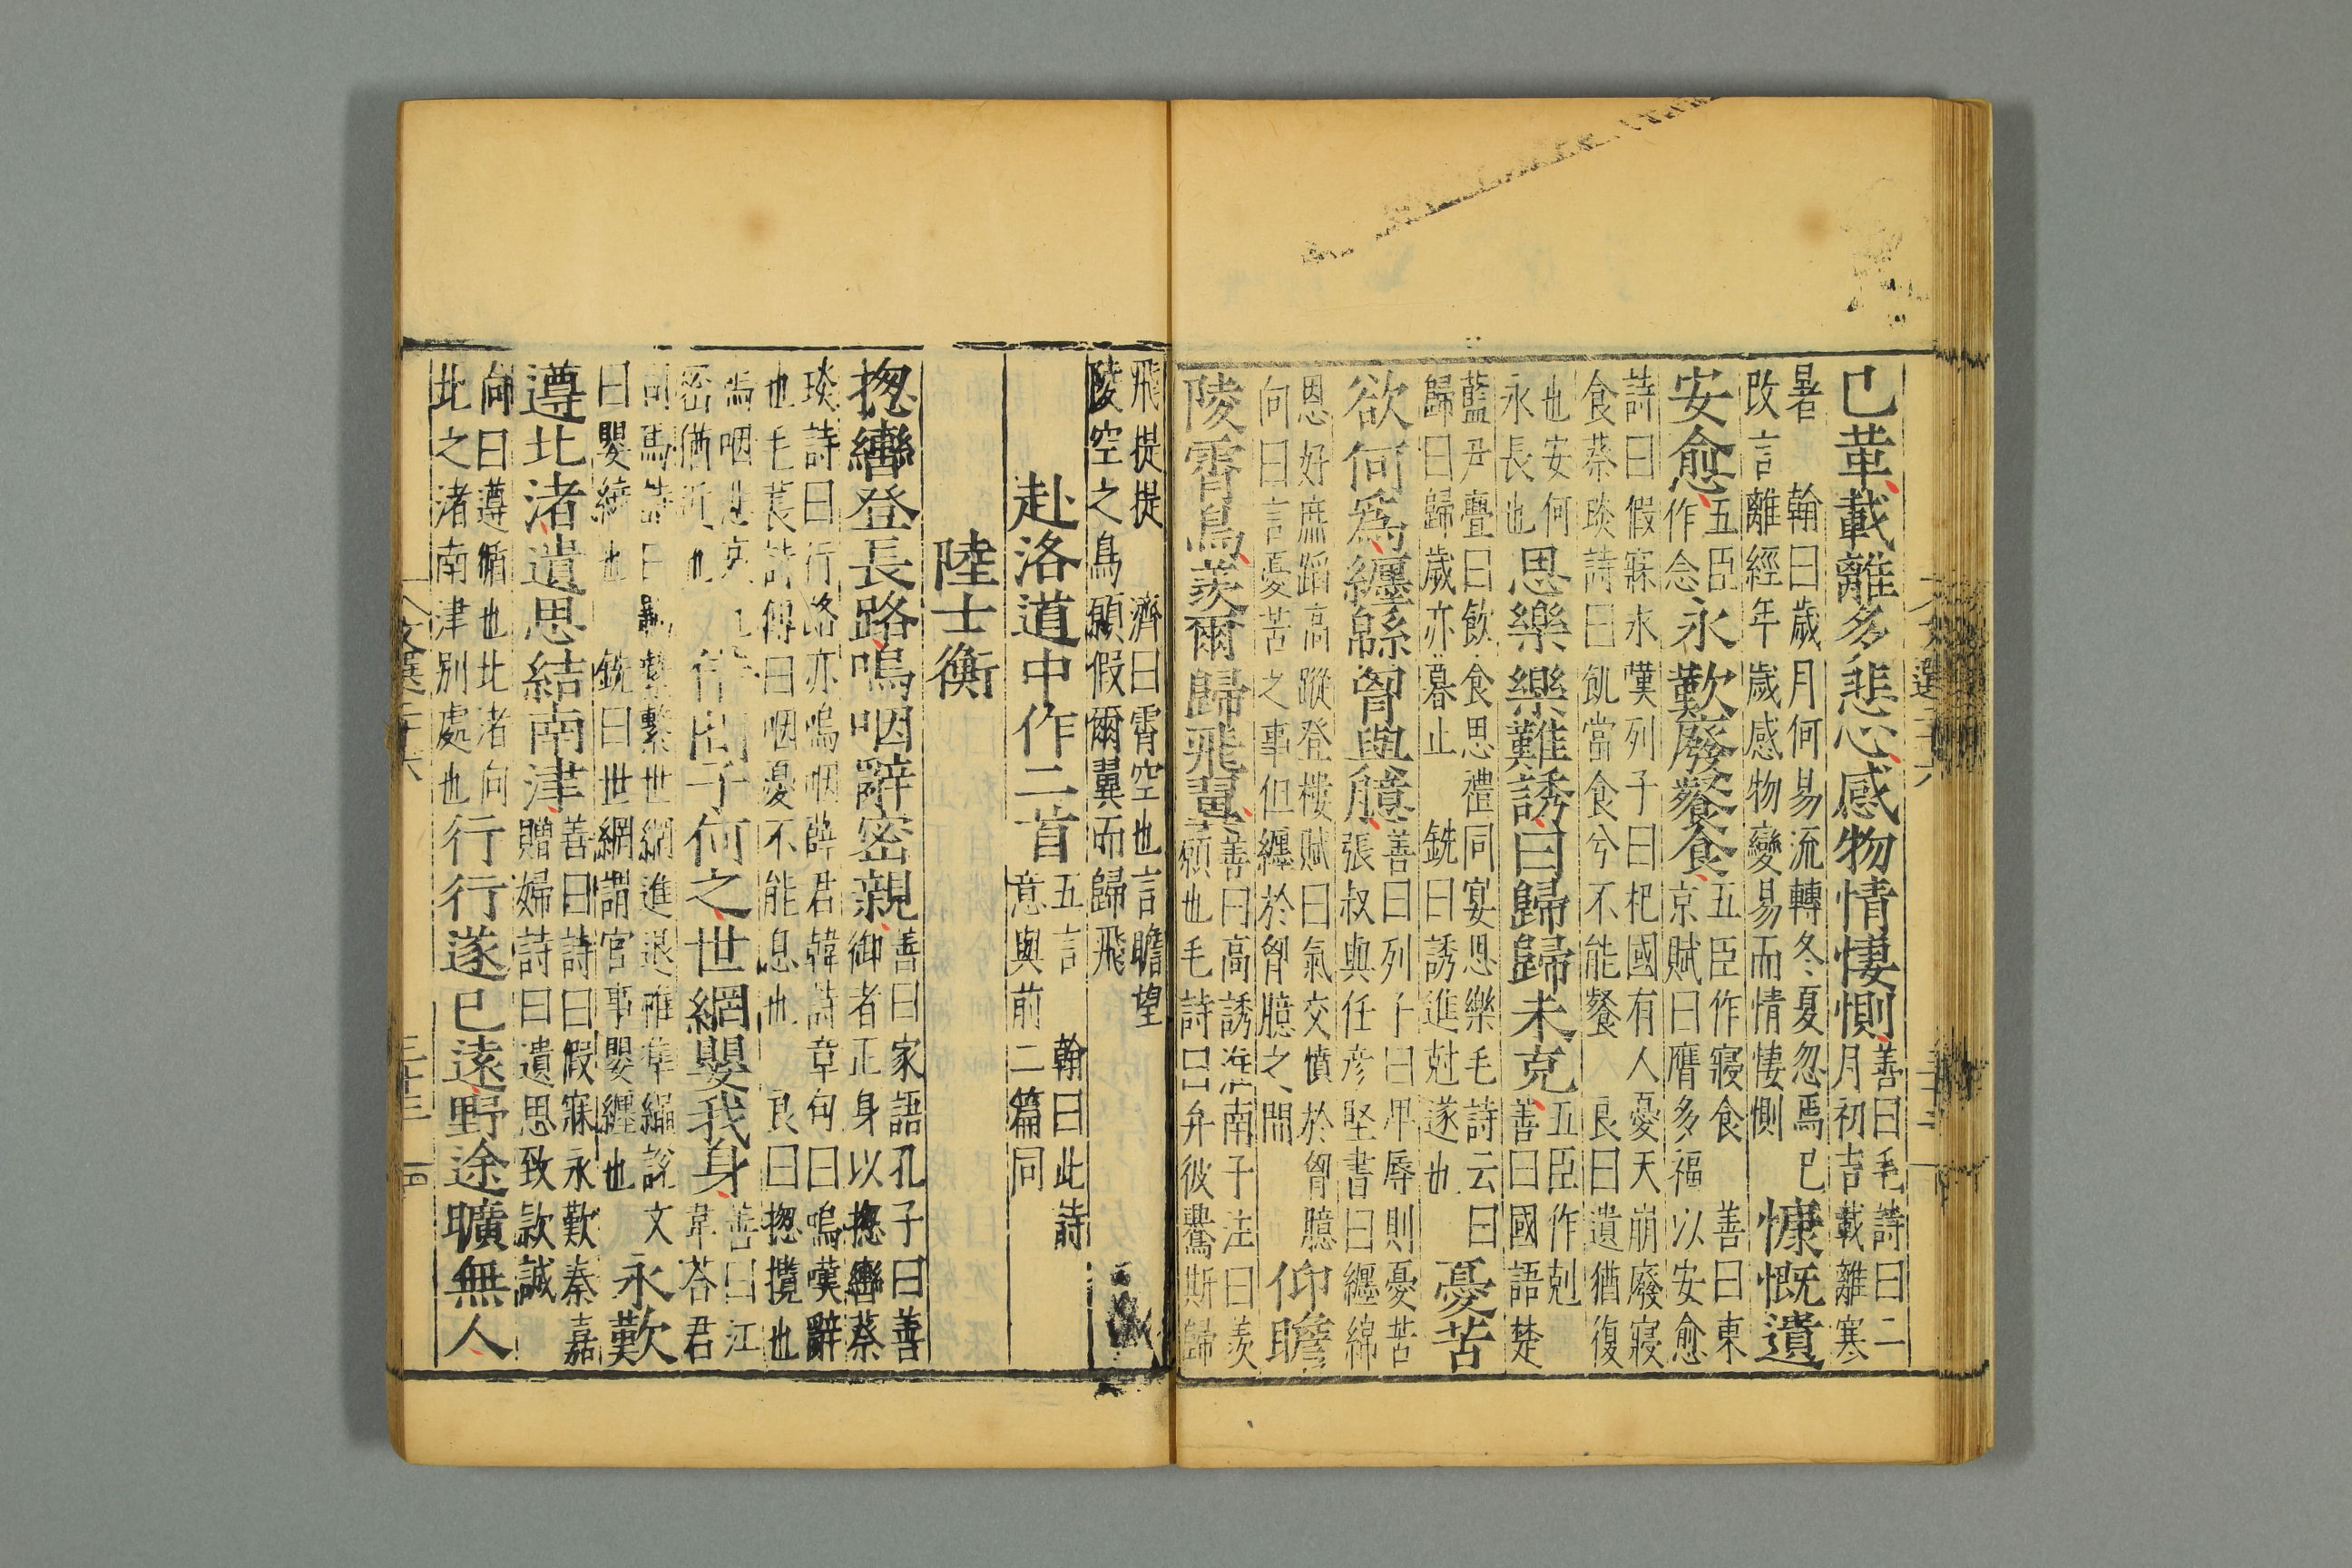 已革載離多悲心感物情悽惻善曰毛詩曰二
月初吉載離寒
暑 翰曰歲月何易流轉冬夏忽焉已
改言離經年歲感物變易而情悽惻
慷慨遺
安愈五臣
作念
永歎廢餐食五臣作寢食 善曰東
京賦曰膺多福以安愈
詩曰假寐永嘆列子曰杞國有人憂天崩廢寢
食蔡琰詩曰飢當食兮不能餐 良曰遺猶復
也安何
永長也
思樂樂難誘曰歸歸未克五臣作剋
善曰國語楚
藍尹亹曰飲食思禮同宴思樂毛詩云曰
歸曰歸歲亦暮止 銑曰誘進尅遂也
憂苦
欲何爲纏緜胷與臆善曰列子曰卑辱則憂苦
張叔與任彥堅書曰纏綿
恩好庶蹈高蹤登樓賦曰氣交憤於胷臆
向曰言憂苦之事但纏於胷臆之間
仰瞻
陵霄鳥羨爾歸飛翼善曰高誘淮南子注曰羨
願也毛詩曰弁彼鸒斯歸
飛提提 濟曰霄空也言瞻望
陵空之鳥願假爾翼而歸飛
赴洛道中作二首五言 翰曰此詩
意與前二篇同
陸士衡
揔轡登長路嗚咽辭密親善曰家語孔子曰善
御者正身以揔轡蔡
琰詩曰行路亦嗚咽薛君韓詩章句曰嗚嘆辭
也毛萇詩傳曰咽憂不能息也 良曰揔攬也
嗚咽悲哀也
密猶近也
借問子何之世網嬰我身善曰江
韋荅君
司馬詩曰羈繫世網進退惟準繩說文
曰嬰繞也 銑曰世網謂官事嬰纏也
永歎
遵北渚遺思結南津善曰詩曰假寐永歎秦嘉
贈婦詩曰遺思致款誠
向曰遵循也北渚向
北之渚南津別處也
行行遂已遠野途曠無人
文選二十六
三十三